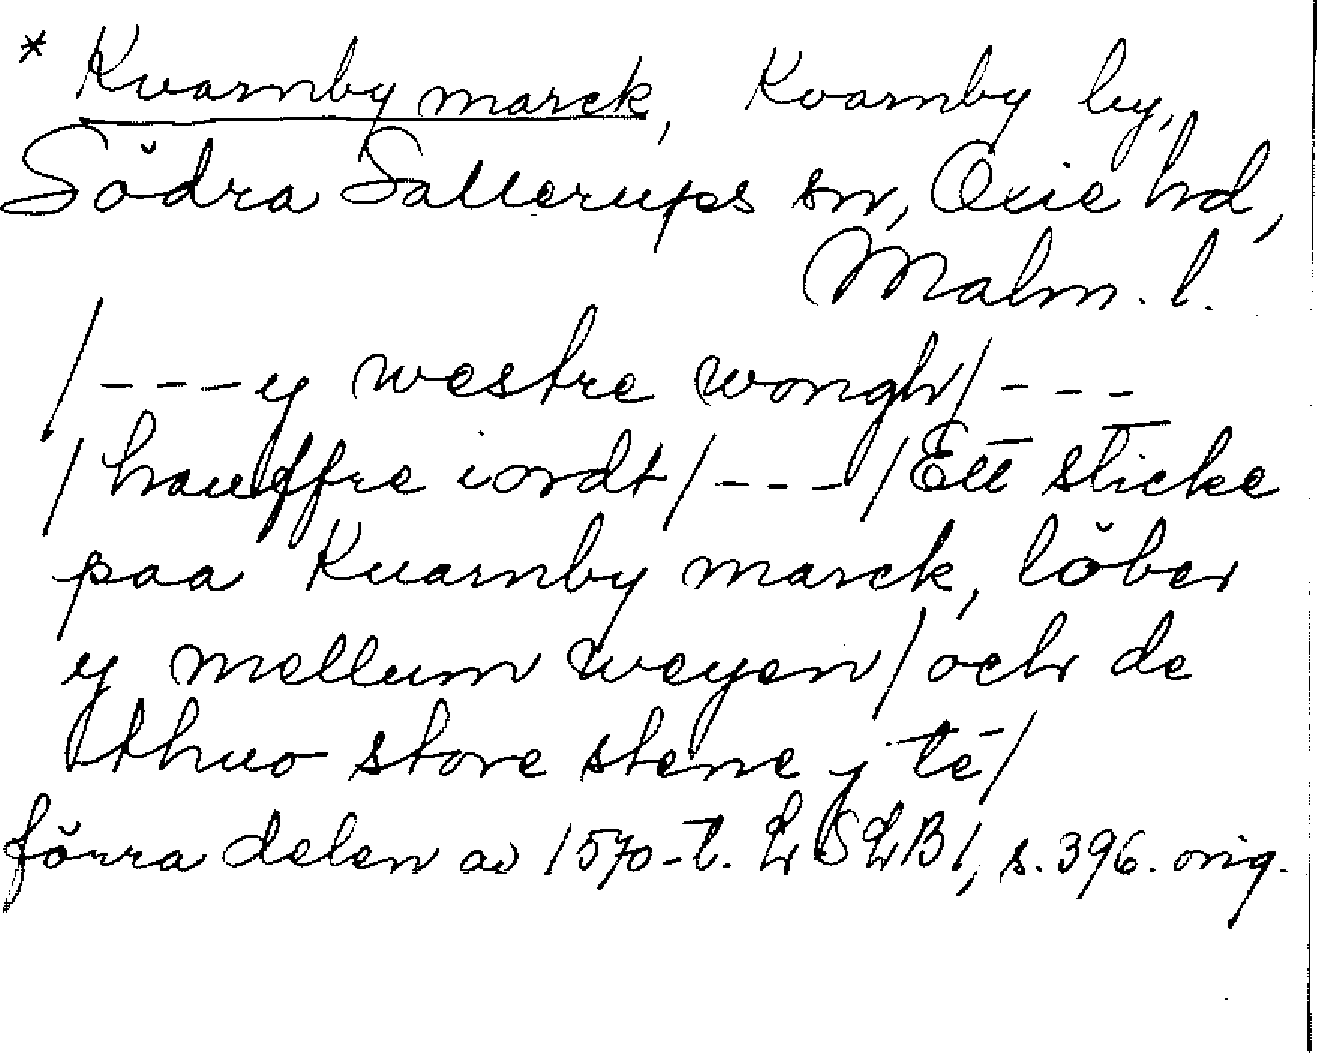 * Kvarnby marck, Kvarnby by,
Södra Sallerups sn, Oxie hd,
Malm. l.
/---y westre wongh/---
/hauffre iordt/---/Ett sticke
paa Kuarnby marck, löber
y mellum weyen/och de
thuo store stene y te/
förra delen av 1570-t. LSLB1, s. 396. orig.